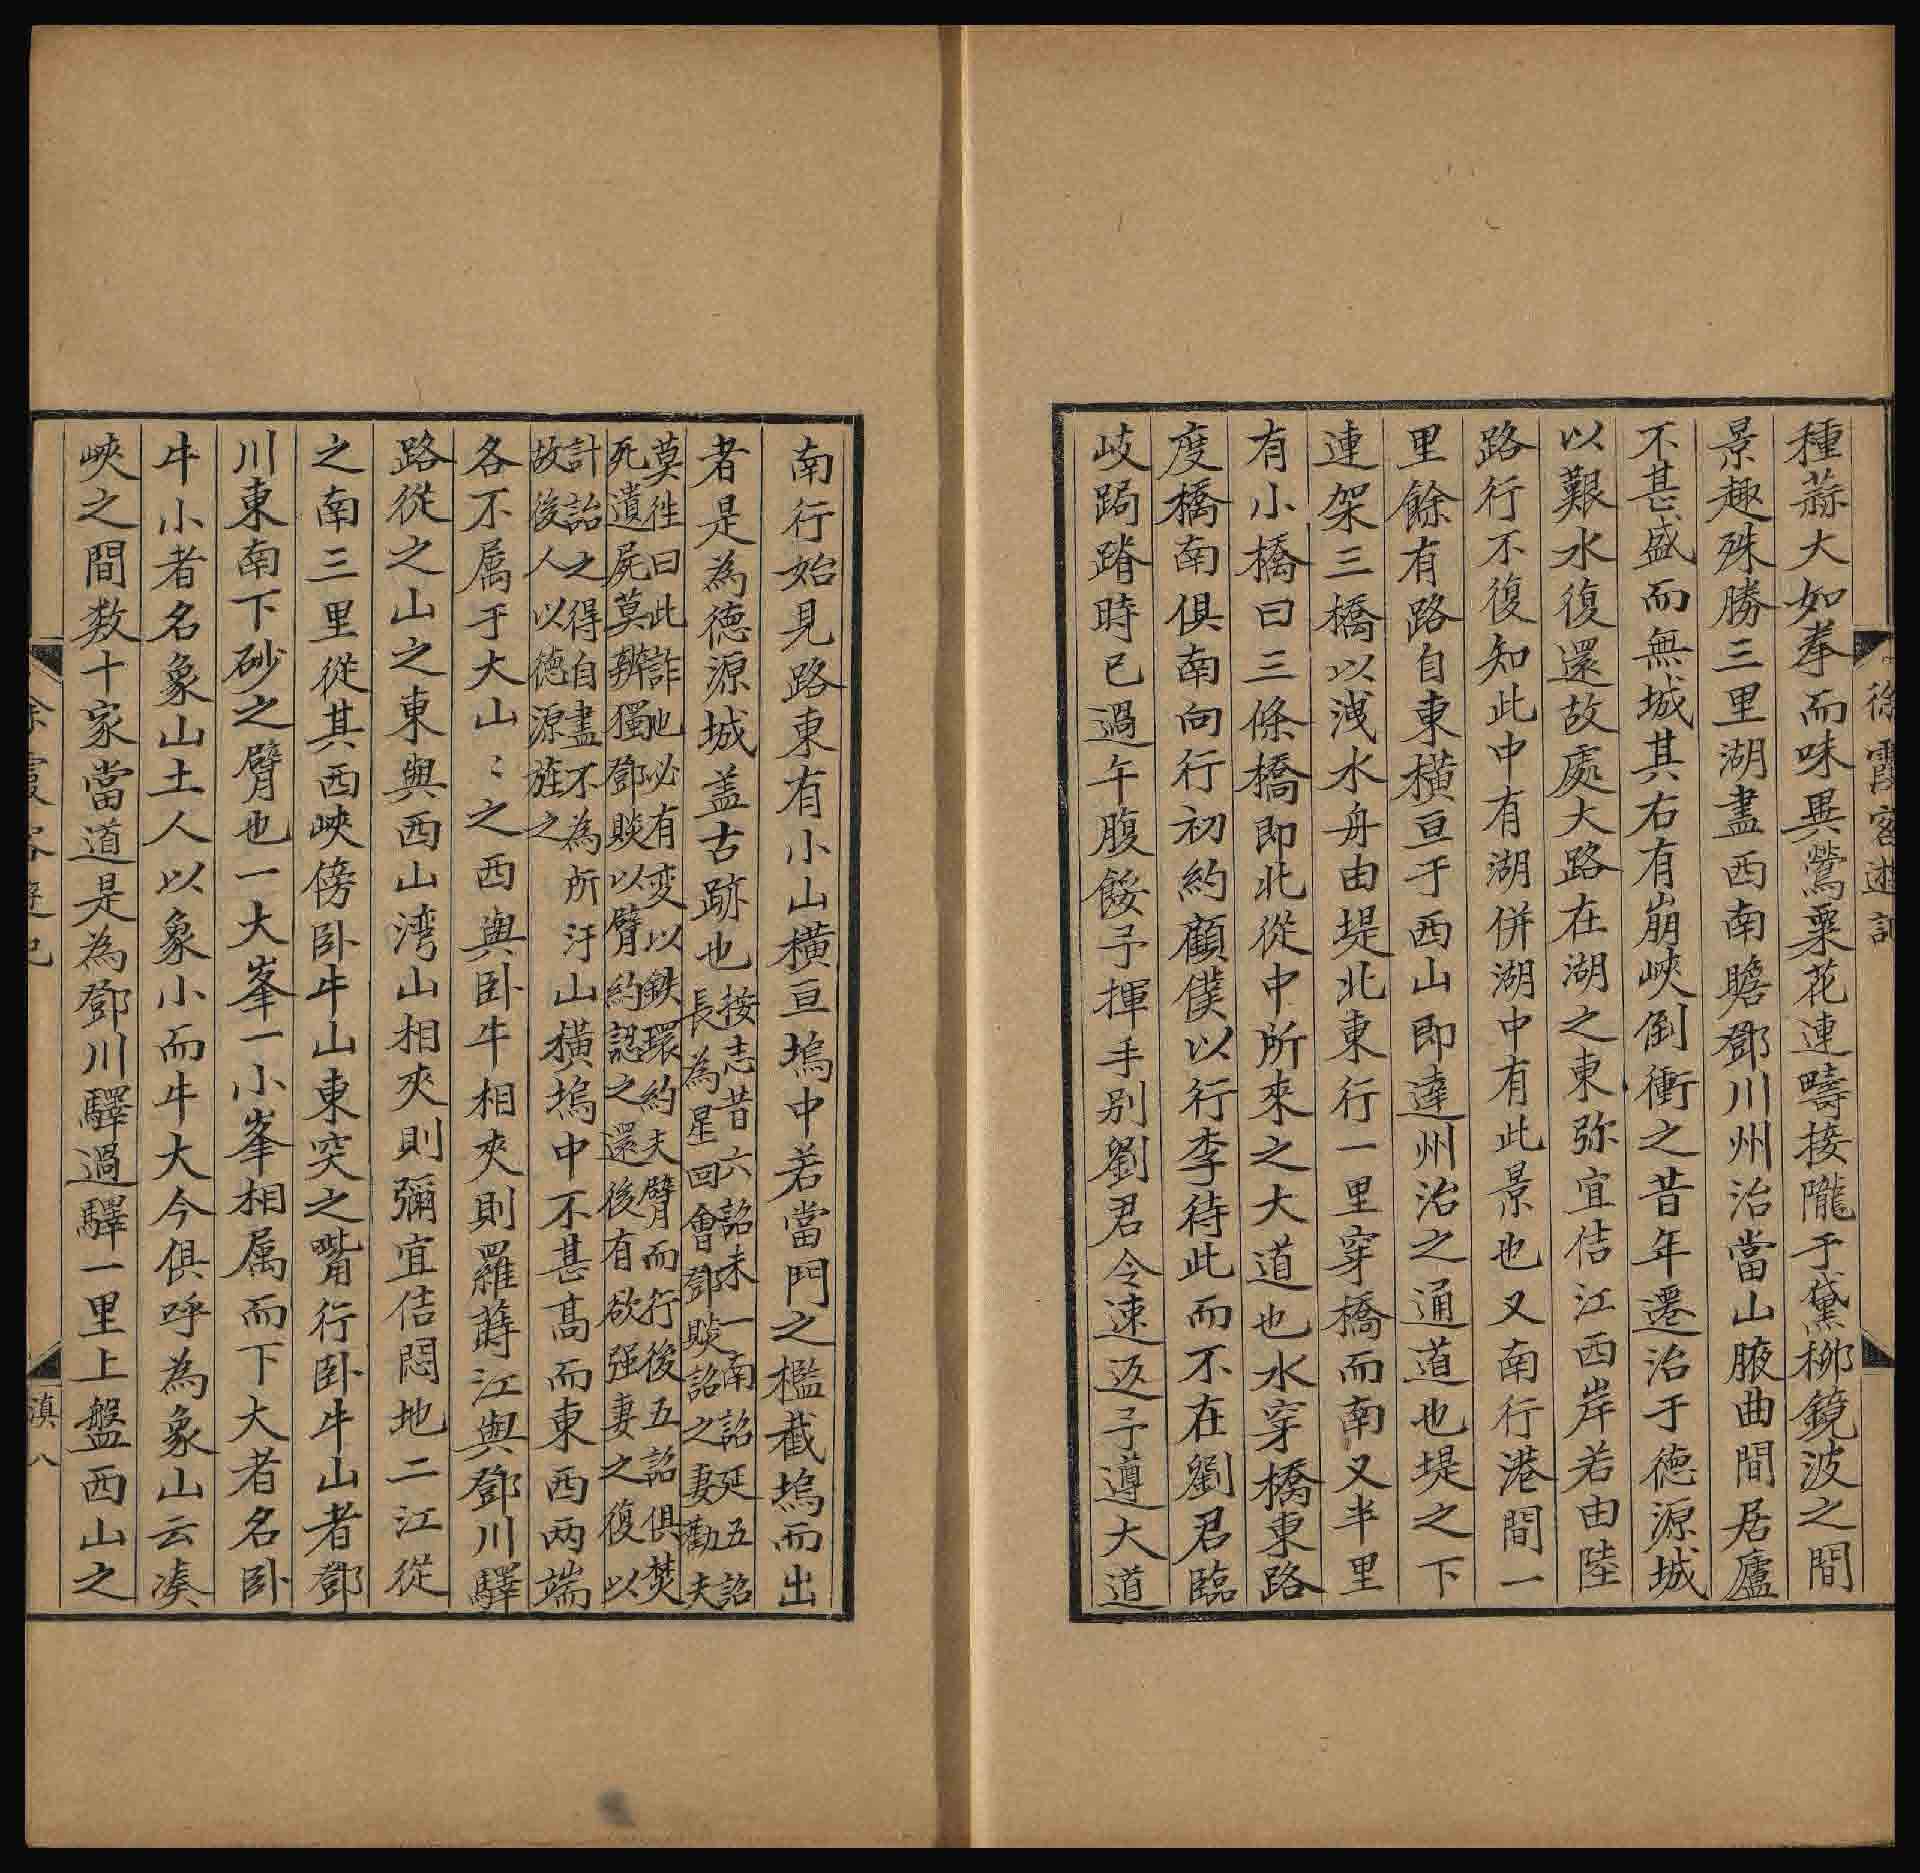 徐霞客遊記
種蒜大如拳而味異鶯粟花連疇接隴于黛柳鏡波之間
景趣殊勝三里湖盡西南瞻鄧川州治當山腋曲間居廬
不甚盛而無城其右有崩峽倒衝之昔年遷治于德源城
以艱水復還故處大路在湖之東弥宜佶江西岸若由陸
路行不復知此中有湖併湖中有此景也又南行港間一
里餘有路自東橫亘于西山即達州治之通道也堤之下
連架三橋以洩水舟由堤北東行一里穿橋而南又半里
有小橋曰三條橋即北從中所來之大道也水穿橋東路
度橋南俱南向行初約顧僕以行李待此而不在劉君臨
岐跼蹐時已過午腹餒予揮手別劉君令速返予遵大道
南行始見路東有小山橫亘塢中若當門之檻截塢而出
者是為德源城盖古跡也
按志昔六詔未一南詔延五詔
長為星回會鄧賧詔之妻勸夫
莫徃曰此詐也必有変以鉄環約夫臂而行後五詔俱焚
死遺屍莫辨獨鄧賧以臂約認之還後有欲强妻之復以
計詒之得自盡不為所汙
故後人以德源旌之
山橫塢中不甚髙而東西两端
各不属于大山〻之西與卧牛相夾則羅蒔江與鄧川驛
路從之山之東與西山湾山相夾則彌宜佶悶地二江從
之南三里從其西峽傍卧牛山東突之嘴行卧牛山者鄧
川東南下砂之臂也一大峯一小峯相属而下大者名卧
牛小者名象山土人以象小而牛大今俱呼為象山云湊
峽之間数十家當道是為鄧川驛過驛一里上盤西山之
徐霞客遊記
滇八